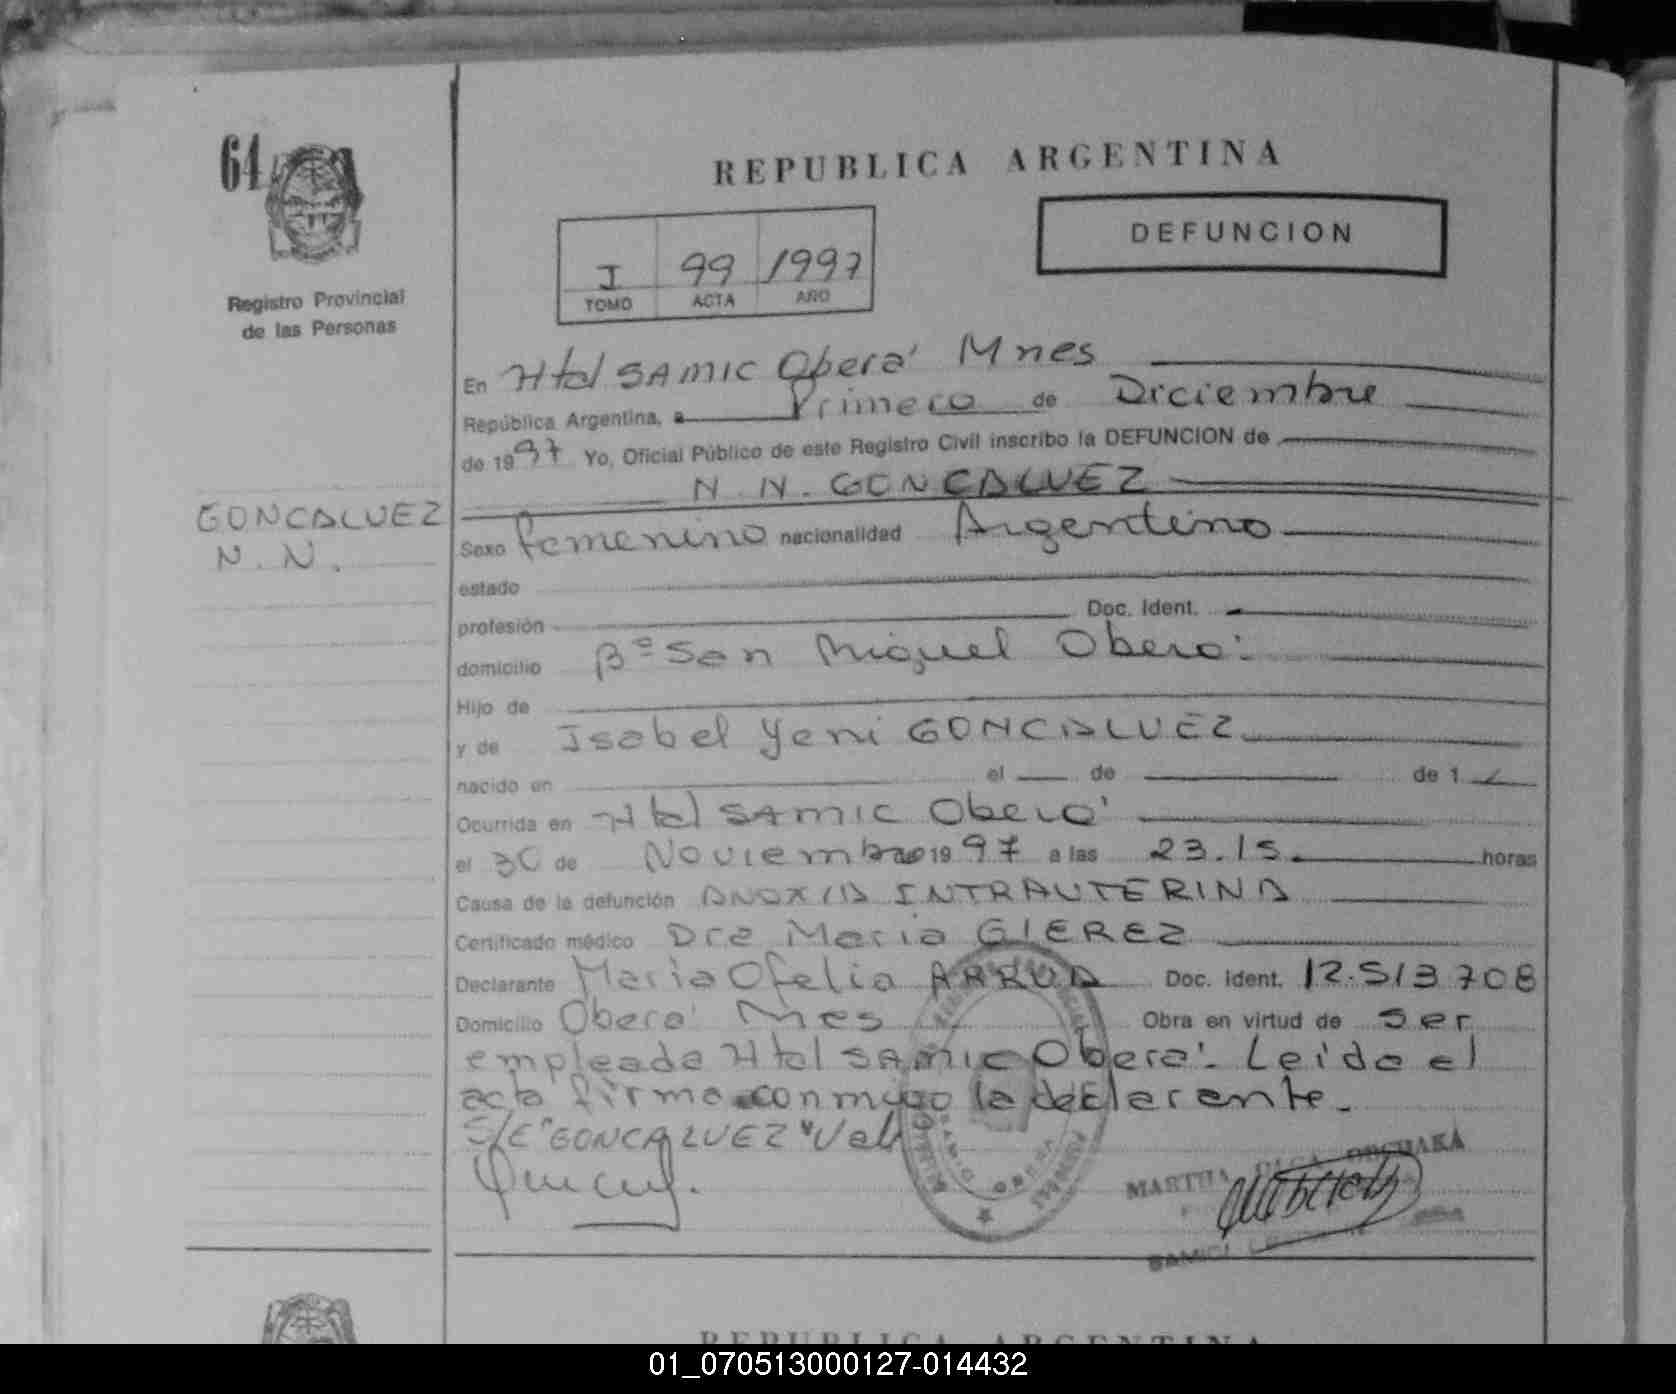 64
REPUBLICA ARGENTINA
DEFUNCION
I 99 1997
TOMO ACTA AÑO
Registro Provincial
de las Personas
En Htal SAMIC Oberá Mnes
República Argentina, a Primero de Diciembre
de 1997 Yo, Oficial Público de este Registro Civil inscribo la DEFUNCION de
N.N. GONCALVEZ
GONCALVEZ
N.N.
Sexo femenino nacionalidad Argentino
estado
profesión Doc. Ident.
domicilio Bº San Miguel Oberá.
Hijo de
y de Isabel Yeni GONCALVEZ
nacido en el de de 1
Ocurrida en Htal SAMIC Oberá
el 30 de Noviembre 1997 a las 23.15. horas
Causa de la defunción ANOXIA INTRAUTERINA
Certificado médico Dra Maria GIEREZ
Declarante Maria Ofelia ARRUA Doc. Ident. 12.513.708
Domicilio Oberá Mes Obra en virtud de ser
empleada Htal SAMIC Oberá. Leida el
acta firma conmigo la declarante.
S/E "GONCALVEZ" Vale
MARTHA OLGA
REPUBLICA ARGENTINA
01_070513000127-014432